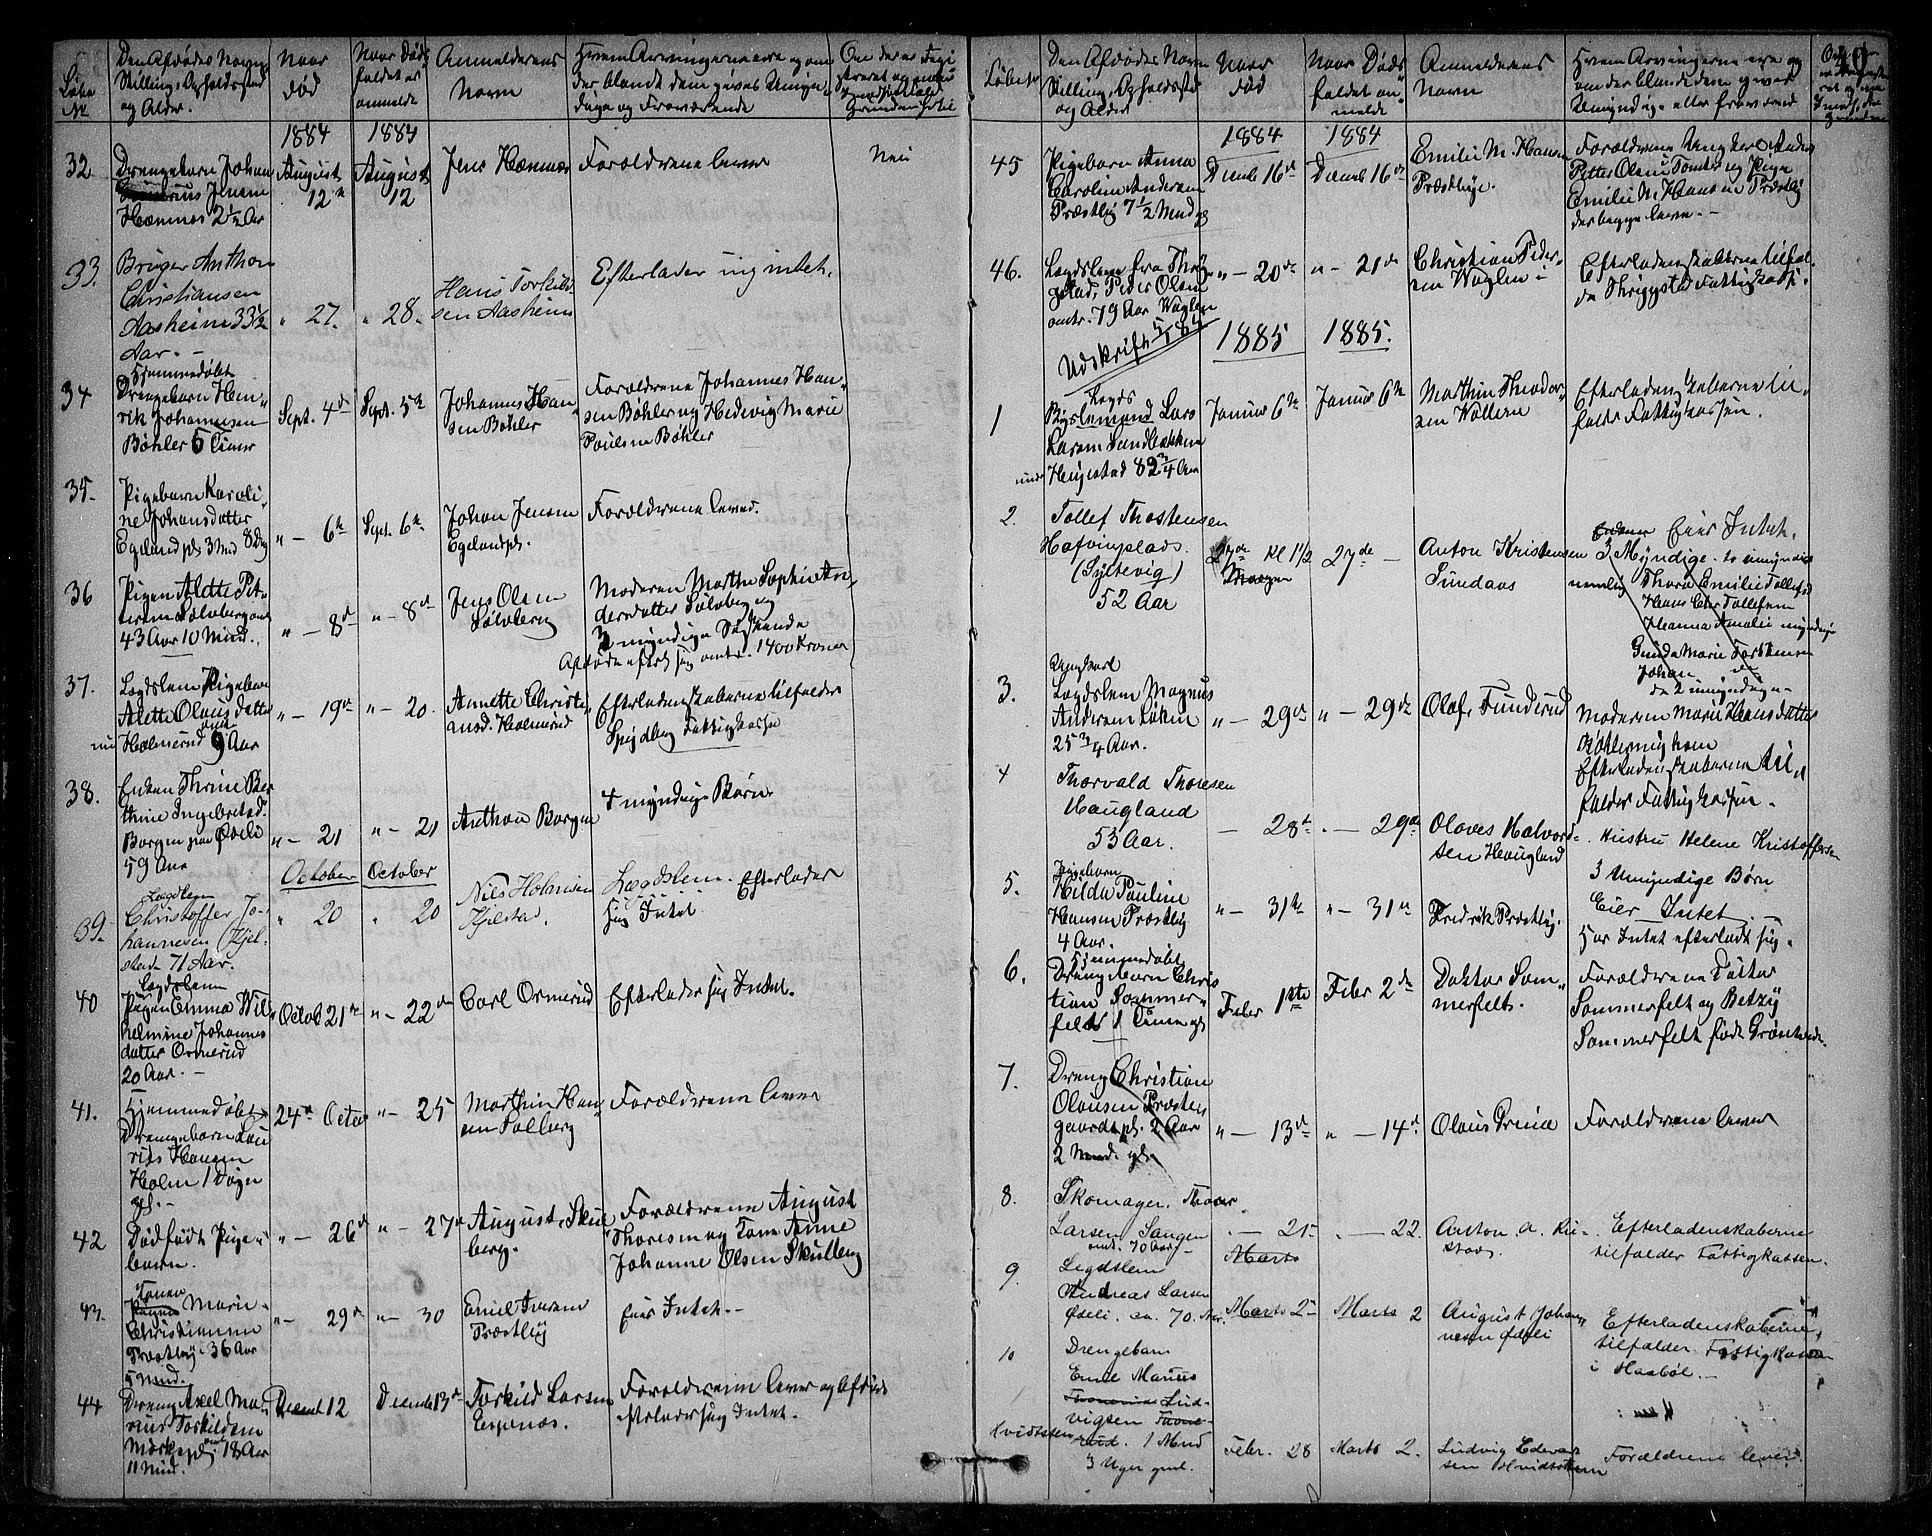 Løbe No
Den Afdødes Navn
Stilling, Opholdssted
og Alder.
Naar
død
Naar Døds
faldet er
anmeldt
Anmelderens
Navn
Hvem Arvingerne ere og om
der blandt dem gives Umyn
dige og Fraværende
1884
1884
32
Drengebarn Johan
Jensen
Hæmnes 2½ Aar
August
12te
August
12
Jens Hæmnes
Forældrene lever
Nei
33.
Bruger Anthon
Christiansen
Aasheim 33½
Aar. –
" 27.
" 28.
Hans Torkild
sen Aasheim
Efterlader sig intet.
34
Hjemmedøbt
Drengebarn Hen
rik Johannesen
Bøhler 5 Timer
Sept. 4de
Sept. 5te
Johannes Han
sen Bøhler
Forældrene Johannes Han
sen Bøhler og Hedevig Marie
Paulsen Bøhler
35.
Pigebarn Karoli
ne Johansdatter
Egelandpls 3 Md 8 Dag
" – 6te
Sept. 6te
Johan Jensen
Egelandpls.
Forældrene lever.
36
Pigen Alette Pet
ersen Sølvberg
43 Aar 10 Mind.
" – 8de
" – 8de
Jens Olsen
Sølvberg
Moderen Marthe Sophie An
dersdatter Sølvberg og
3 myndige Søskende
Afdøde efterl. sig omtr. 1400 Kroner
37.
Lægdslem Pigebarn
Alette Olausdatter
Holmerud 9 Aar
" – 19de
" – 20.
Annette Christi
ansd. Holmerud
Efterladenskaberne tilfalder
Spydberg Fattigkasse
38.
Enken Thrine Ber
thine Ingebretsd.
Borgen paa Ødeli
59 Aar
" – 21
" – 21
Anthon Borgen
4 myndige Børn
October
October
39.
Lægdslem
Christoffer Jo-
hannesen Kjel-
stad 71 Aar.
" 20
" 20
Nils Holmsen
Kjelstad.
Lægdslem. Efterlader
sig Intet.
40
Lægdslem
Pigen Emma Wil
helmine Johannes
datter Ormerud
20 Aar. –
Octob 21de
" – 22de
Carl Ormerud
Efterlader sig Intet.
41.
Hjemmedøbt
Drengebarn Lau
rits Hansen
Holm 1 Døgn
gl. –
24de Octo
" – 25
Marthin Han
sen Solberg
Forældrene lever
42
Dødfødt Pige
barn.
" – 26de
" – 27de
August Skul
berg.
Forældrene August
Thoresen og Kone Anne
Johanne Olsen Skulberg
43.
Konen
Marie
Christiansen
Præstby 36 Aar
5 Mind.
" – 29de
" – 30
Emil Iversen
Præstby
Eier Intet. –
44
Dreng Axel Ma
rius Torkildsen
18 Aar
11 Mind.
Decembr 12
Decembr 13de
Torkild Larsen
Espenæs.
Forældrene lever og Afdøde
efterlader sig Intet.
40
Løbe No
Den Afdødes Navn
Stilling, Opholdssted
og Alder
Naar
død
Naar Døds
faldet an
meldt
Anmelderens
Navn
Hvem Arvingerne ere og
om der blandt dem gives
Umyndige eller fraværend
1884
1884
45
Pigebarn Anna
Caroline Andersen
Præstby 7½ Mnd gl
Decemb 16de
Decemb 16de
Emilie M. Hansen
Præstbye.
Forældrene Ungkarl Anders
Petter Olsen Tomter og Pige
Emilie M. Hansen Præstby
der begge lever. –
46.
Lægdslem fra Thryg
stad, Peder Olsen
omtr. 79 Aar Waglen
" – 20de
" – 21de
Christian Peder
sen Waglen
Efterladenskaberne tilfal
de Thrygstad Fattigkasse.
Udskrift 5/1 85
1885
1885.
1
Lægds
Lars
Larsen Sandbækken
Hengestad 82¾ Aar
Januar 6te
Januar 6te
Marthin Theodor
sen Wollern
Efterladenskaberne til
falder Fattigkassen.
2.
Tollef Thostensen
Hafvingplads.
(Syltevig)
52 Aar
27de Kl 1½
27de –
Anton Kristensen
Sundaas
Eier Intet.
3 Myndige. to umyndige
nemlig Thora Emilie Tollefsd
Hans Tollefsen
Hanna Amalie myndige
Gunda Marie
Johan
de 2 umyndige –
3.
Ungkarl
Lægdslem Magnus
Andersen Løken
25¾ Aar.
" – 29de
" – 29de
Olaf Funderud
Moderen Marie Hansdatter
Efterladenskaberne til
falder Fattigkassen.
4
Thorvald Thoresen
Haugland
53 Aar.
– 28de
" – 29de
Olaves Halvord-
sen Haugland
Hustru Helene Kristoffersen
3 Umyndige Børn
Eier Intet. –
5.
Pigebarn
Hilda Pauline
Hansen Præstby
4 Aar.
" – 31te
" – 31te
Fredrik Præstby.
Intet efterladt sig.
6.
Hjemmedøbt
Drengebarn Chris
tian Sommer
feldt 1 Time gl
Febr 1ste
Febr 2de
Doktor Som
merfelt.
Forældrene Doktor
Sommerfelt og Betzy
Sommerfelt født Grøntvedt.
7.
Dreng Christian
Olausen Præste
gaardspl. 2 Aar
2 Mnd. gl.
" – 13de
" – 14de
Olaus
Forældrene lever
8.
Skomager. Thor
Larsen Sangen
omtr. 70 Aar –
" – 21
" – 22.
Anton A. Ru-
stad.
Efterladenskaberne
tilfalder Fattigkassen.
Marts
9.
Legdslem
Andreas Larsen
Ødeli. ca. 70 Aar.
Marts 2
Marts 2
August Johan
nesen Ødeli
Efterladenskaberne
tilfalder Fattigkassen
i Haabøl. –
10
Drengebarn
Emil Marius
Lud-
vigsen
Hvidtsten
1 Mnd
3 Uger gml.
Febr. 28
Marts 2.
Ludvig Edvard
sen Hvidtsten
Forældrene lever.